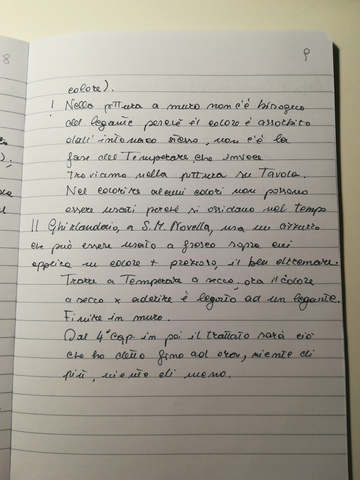 9
8
colore).
! Nella pittura a muro non c'è bisogno
del legante perchè il colore è assorbito
dall'intonaco stesso, non c'è la
fase del Temperare che invece
troviamo nella pittura su Tavola.
Nel colorire alcuni colori non possono
essere usati perchè si ossidano nel tempo
Il Ghirlandaio, a S.M. Novella, usa un azzurro
che può essere usato a fresco sopra cui
applica un colore + prezioso, il blu oltremare.
Trare a Temperare a secco, ora il colore
a secco x aderire è legato ad un legante.
Finire in muro.
Dal 4° cap in poi il trattato sarà ciò
che ho detto fino ad ora, niente di
più, niente di meno.